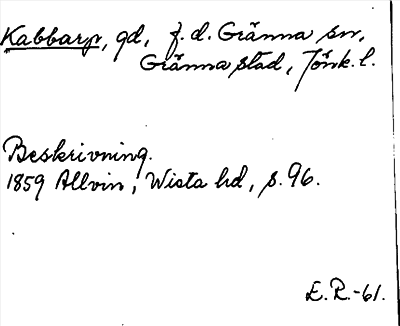 Kabbarp, gd, f.d. Gränna sn,
Gränna stad, Jönk.l.
Beskrivning.
1859 Allvin, Wista hd, s. 96.
E.R.-61.